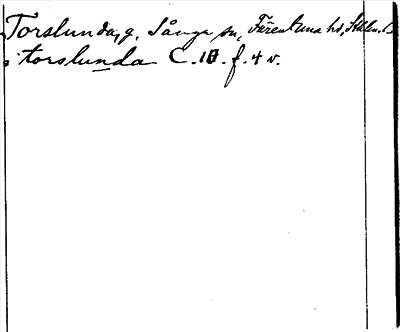 Torslunda, g. Sånga sn, Färentuna hd, Sthlm. l.
i torslunda C. 10. f. 4 v.